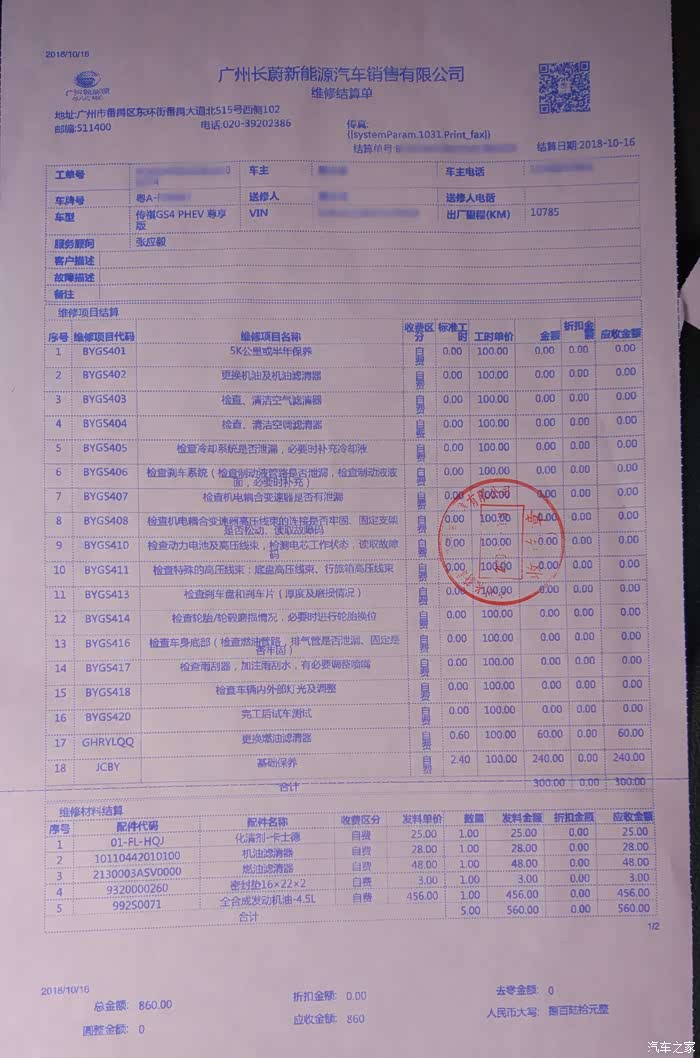 2018/10/16
广州长蔚新能源汽车销售有限公司
维修结算单
地址:广州市番禺区东环街番禺大道北515号西侧102
邮编:511400 电话:020-39202386 传真:
{{systemParam.1031.Print_fax}}
结算单号: 结算日期:2018-10-16
工单号 车主 车主电话
车牌号 粤A- 送修人 送修人电话
车型 传祺GS4 PHEV 尊享版 VIN 出厂里程(KM) 10785
服务顾问 张应毅
客户描述
故障描述
备注
维修项目结算
序号 维修项目代码 维修项目名称 收费区分 标准工时 工时单价 金额 折扣金额 应收金额
1 BYGS401 5K公里或半年保养 自费 0.00 100.00 0.00 0.00 0.00
2 BYGS402 更换机油及机油滤清器 自费 0.00 100.00 0.00 0.00 0.00
3 BYGS403 检查、清洁空气滤清器 自费 0.00 100.00 0.00 0.00 0.00
4 BYGS404 检查、清洁空调滤清器 自费 0.00 100.00 0.00 0.00 0.00
5 BYGS405 检查冷却系统是否泄漏，必要时补充冷却液 自费 0.00 100.00 0.00 0.00 0.00
6 BYGS406 检查刹车系统（检查制动液管路是否泄漏，检查制动液液面，必要时补充） 自费 0.00 100.00 0.00 0.00 0.00
7 BYGS407 检查机电耦合变速器是否有泄漏 自费 0.00 100.00 0.00 0.00 0.00
8 BYGS408 检查机电耦合变速器高压线束的连接是否牢固、固定支架是否松动、读取故障码 自费 0.00 100.00 0.00 0.00 0.00
9 BYGS410 检查动力电池及高压线束，检测电芯工作状态，读取故障码 自费 0.00 100.00 0.00 0.00 0.00
10 BYGS411 检查特殊的高压线束：底盘高压线束、行旅箱高压线束 自费 0.00 100.00 0.00 0.00 0.00
11 BYGS413 检查刹车盘和刹车片（厚度及磨损情况） 自费 0.00 100.00 0.00 0.00 0.00
12 BYGS414 检查轮胎/轮毂磨损情况，必要时进行轮胎换位 自费 0.00 100.00 0.00 0.00 0.00
13 BYGS416 检查车身底部（检查燃油管路，排气管是否泄漏、固定是否牢固） 自费 0.00 100.00 0.00 0.00 0.00
14 BYGS417 检查雨刮器，加注雨刮水，有必要调整喷嘴 自费 0.00 100.00 0.00 0.00 0.00
15 BYGS418 检查车辆内外部灯光及调整 自费 0.00 100.00 0.00 0.00 0.00
16 BYGS420 完工后试车测试 自费 0.00 100.00 0.00 0.00 0.00
17 GHRYLQQ 更换燃油滤清器 自费 0.60 100.00 60.00 0.00 60.00
18 JCBY 基础保养 自费 2.40 100.00 240.00 0.00 240.00
合计 300.00 0.00 300.00
维修材料结算
序号 配件代码 配件名称 收费区分 发料单价 数量 发料金额 折扣金额 应收金额
1 01-FL-HQJ 化清剂-卡士德 自费 25.00 1.00 25.00 0.00 25.00
2 10110442010100 机油滤清器 自费 28.00 1.00 28.00 0.00 28.00
3 2130003ASV0000 燃油滤清器 自费 48.00 1.00 48.00 0.00 48.00
4 9320000260 密封垫16×22×2 自费 3.00 1.00 3.00 0.00 3.00
5 992S0071 全合成发动机油-4.5L 自费 456.00 1.00 456.00 0.00 456.00
合计 5.00 560.00 0.00 560.00
1/2
2018/10/16
总金额: 860.00 折扣金额: 0.00 去零金额: 0
圆整金额: 0 应收金额: 860 人民币大写: 捌百陆拾元整
汽车之家